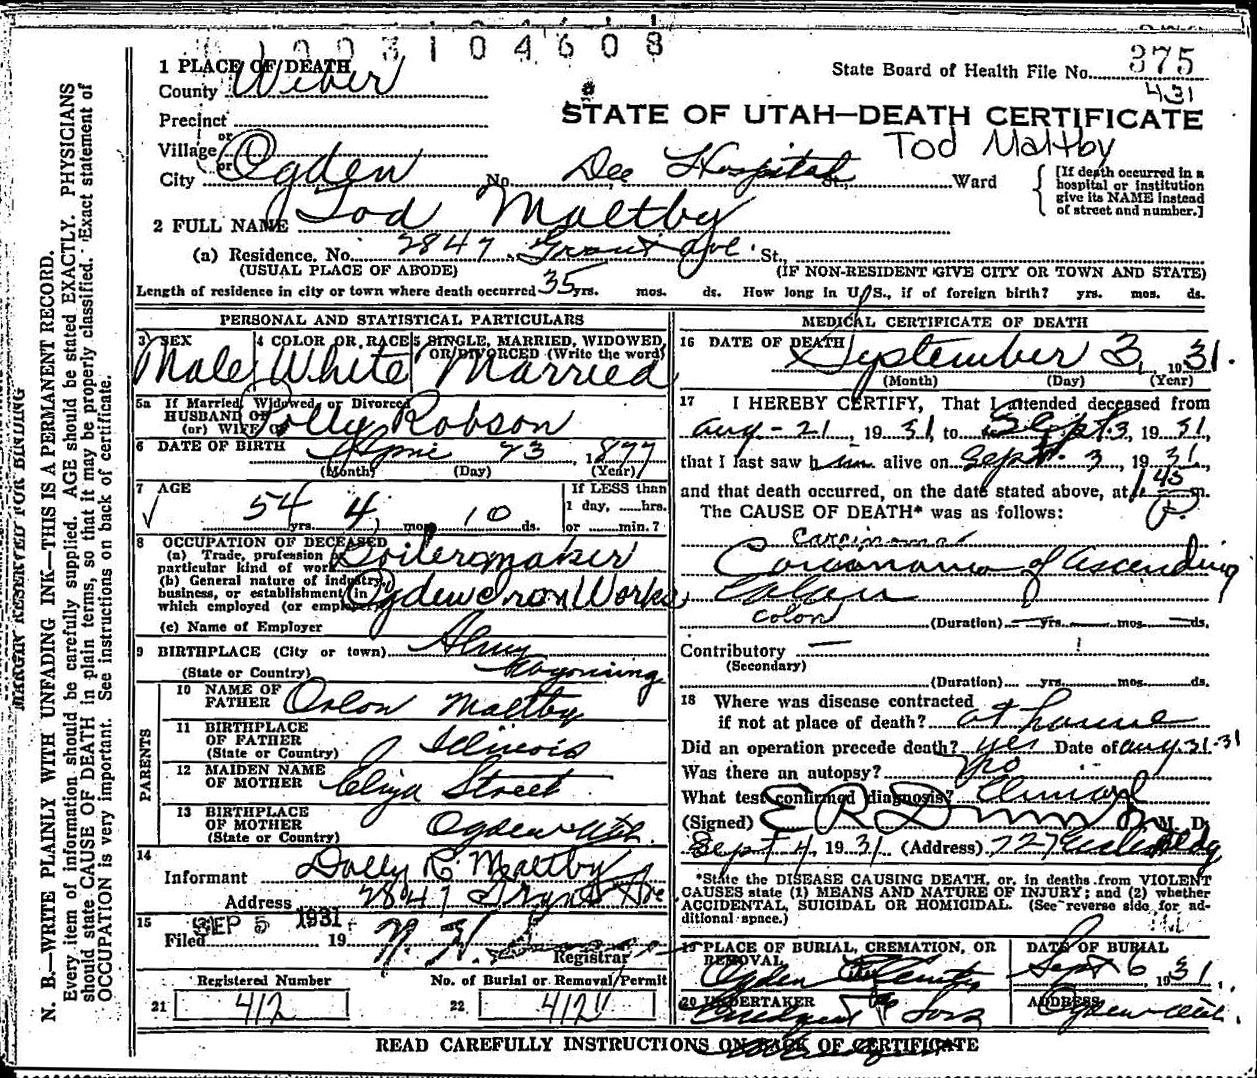 1003104608
1 PLACE OF DEATH
County Weber
State Board of Health File No. 375
431
STATE OF UTAH—DEATH CERTIFICATE
Precinct
or
Village
or
Tod Maltby
City Ogden No. Dee Hospital St., Ward
[If death occurred in a hospital or institution give its NAME instead of street and number.]
2 FULL NAME Tod Maltby
(a) Residence. No. 2847 Grant Ave. St.,
(USUAL PLACE OF ABODE) (IF NON-RESIDENT GIVE CITY OR TOWN AND STATE)
Length of residence in city or town where death occurred 35 yrs. mos. ds. How long in U.S., if of foreign birth? yrs. mos. ds.
PERSONAL AND STATISTICAL PARTICULARS
3 SEX 4 COLOR OR RACE 5 SINGLE, MARRIED, WIDOWED, OR DIVORCED (Write the word)
Male White Married
5a If Married, Widowed, or Divorced
HUSBAND OF
(or) WIFE OF
Robson
6 DATE OF BIRTH 23, 1877
(Month) (Day) (Year)
7 AGE
If LESS than
1 day, ___hrs.
54 yrs. 4 mos. 10 ds. or ___min.?
8 OCCUPATION OF DECEASED
(a) Trade, profession or
particular kind of work Boilermaker
(b) General nature of industry,
business, or establishment in
which employed (or employer) Ogden Iron Works
(c) Name of Employer
9 BIRTHPLACE (City or town) Almy
(State or Country) Wyoming
PARENTS
10 NAME OF
FATHER Orlon Maltby
11 BIRTHPLACE
OF FATHER
(State or Country) Illinois
12 MAIDEN NAME
OF MOTHER Eliza Street
13 BIRTHPLACE
OF MOTHER
(State or Country) Ogden Utah.
14
Informant Dolly R. Maltby
Address 2847 Grant Ave
15 SEP 5 1931
Filed 19
Registrar
Registered Number No. of Burial or Removal Permit
21 412 22 412
MEDICAL CERTIFICATE OF DEATH
16 DATE OF DEATH
September 3, 1931.
(Month) (Day) (Year)
17 I HEREBY CERTIFY, That I attended deceased from
Aug-21, 1931, to Sept. 3, 1931,
that I last saw him alive on Sept. 3, 1931,
and that death occurred, on the date stated above, at 1:45 P.m.
The CAUSE OF DEATH* was as follows:
Carcinoma
Carcinoma of Ascending
Colon
Colon
(Duration) yrs. mos. ds.
Contributory —
(Secondary)
(Duration) yrs. mos. ds.
18 Where was disease contracted
if not at place of death? at home
Did an operation precede death? yes Date of Aug 31-31
Was there an autopsy? No
What test confirmed diagnosis? Clinical
(Signed) M. D.
Sept 4, 1931 (Address) 727 Bldg
*State the DISEASE CAUSING DEATH, or, in deaths from VIOLENT
CAUSES state (1) MEANS AND NATURE OF INJURY; and (2) whether
ACCIDENTAL, SUICIDAL OR HOMICIDAL. (See reverse side for ad-
ditional space.)
19 PLACE OF BURIAL, CREMATION, OR REMOVAL DATE OF BURIAL
Ogden City Sept 6, 1931.
20 UNDERTAKER ADDRESS
& Sons Ogden Utah.
READ CAREFULLY INSTRUCTIONS ON BACK OF CERTIFICATE
MARGIN RESERVED FOR BINDING
N. B.—WRITE PLAINLY WITH UNFADING INK—THIS IS A PERMANENT RECORD.
Every item of information should be carefully supplied. AGE should be stated EXACTLY. PHYSICIANS
should state CAUSE OF DEATH in plain terms, so that it may be properly classified. Exact statement of
OCCUPATION is very important. See instructions on back of certificate.